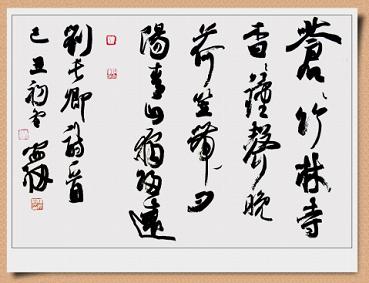 蒼〻竹林寺
杳〻鐘聲晚
荷笠帶夕
陽青山獨歸遠
劉長卿詩首
己丑初冬